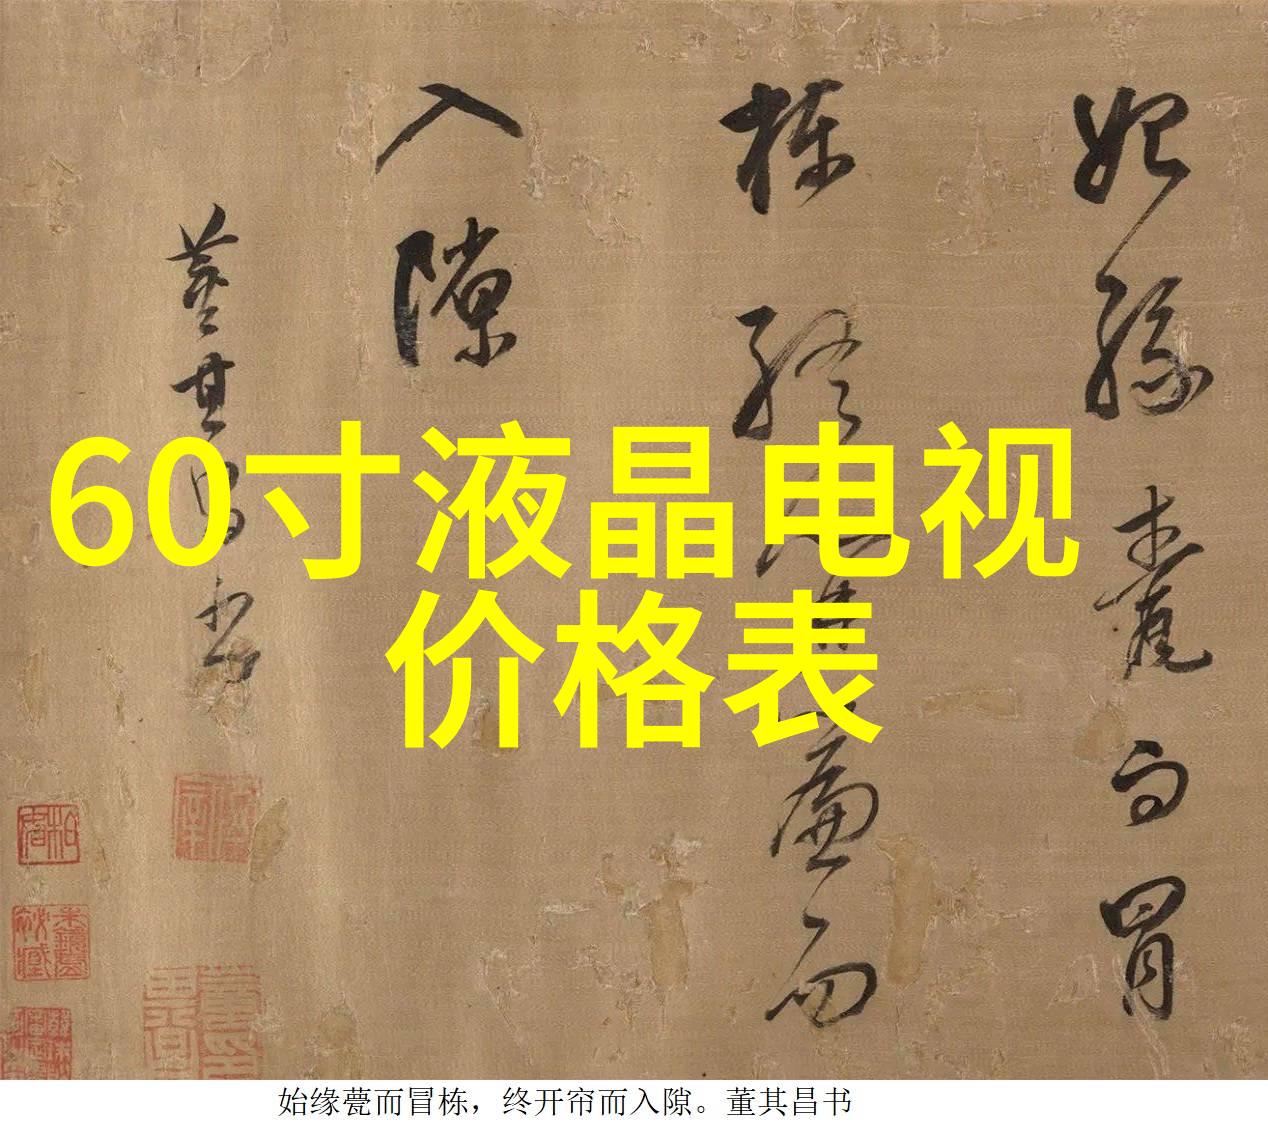 始缘甍而冒
栋终开帘而
入隙
董其昌书
60寸液晶电视
价格表
始缘甍而冒栋，终开帘而入隙。董其昌书